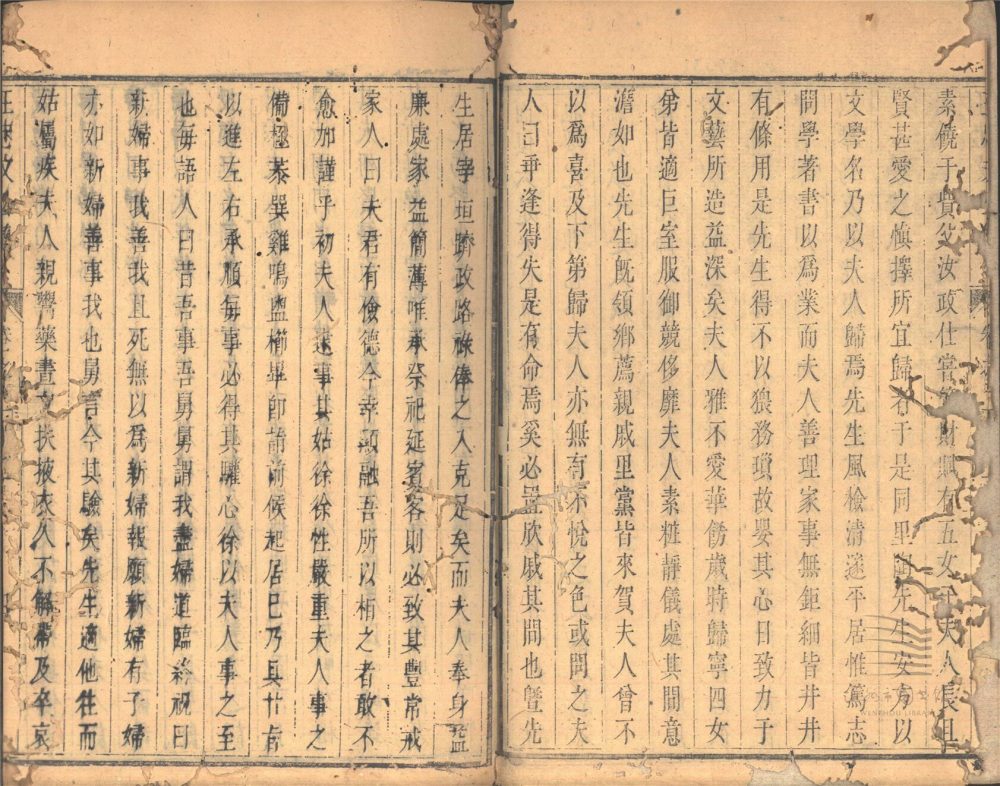 素饒于貲父汝政仕嘗財賦有五女子夫人長且
賢甚愛之慎擇所宜歸者于是同里先生安方以
文學名乃以夫人歸焉先生風檢清邃平居惟篤志
問學著書以爲業而夫人善理家事無鉅細皆井井
有條用是先生得不以猥務瑣故嬰其心日致力于
文藝所造益深矣夫人雅不愛華餙歲時歸寧四女
弟皆適巨室服御競侈靡夫人素粧靜儀處其間意
澹如也先生旣領鄉薦親戚里黨皆來賀夫人曾不
以爲喜及下第歸夫人亦無有不悅之色或問之夫
人曰乖逢得失是有命焉奚必置欣戚其間也曁先
生居宰垣躋政路祿俸之入克足矣而夫人奉身益
廉處家益簡薄唯承祭祀延賓客則必致其豐常戒
家人曰夫君有儉德今幸顯融吾所以相之者敢不
愈加謹乎初夫人逮事其姑徐徐性嚴重夫人事之
備極恭巽雞鳴盥櫛畢卽詣前候起居已乃具甘旨
以進左右承順每事必得其驩心徐以夫人事之至
也每語人曰昔吾事吾舅舅謂我盡婦道臨終祝曰
新婦事我善我且死無以爲新婦報願新婦有子婦
亦如新婦善事我也舅言今其驗矣先生適他往而
姑屬疾夫人親嘗藥晝夜扶掖衣久不解帶及卒哀